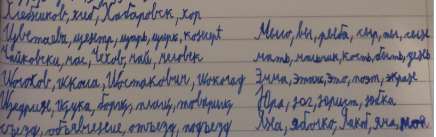 Хлебников, хлеб, Хабаровск, хор
Цветаева, центр, царь, цирк, концерт
Чайковский, час, Чехов, чай, человек
Шолохов, школа, Шостакович, шоколад
Щедрин, щука, борщ, плащ, товарищ
съезд, объявление, отъезд, подъезд
Мыло, вы, рыба, сыр, ты, сын
мать, мальчик, конь, быть, день
Эмма, этаж, это, поэт, экран
Юра, юг, юрист, юбка
Яна, яблоко, Яков, яма, моя